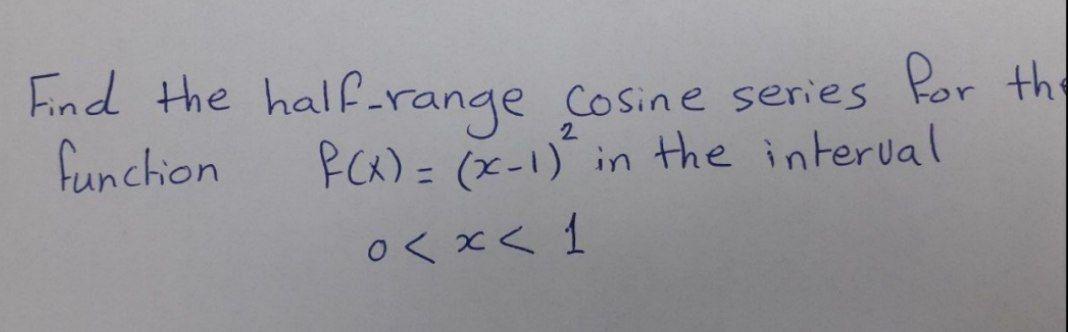 Find the half-range cosine series for the
function f(x) = (x-1)² in the interval
0 < x < 1